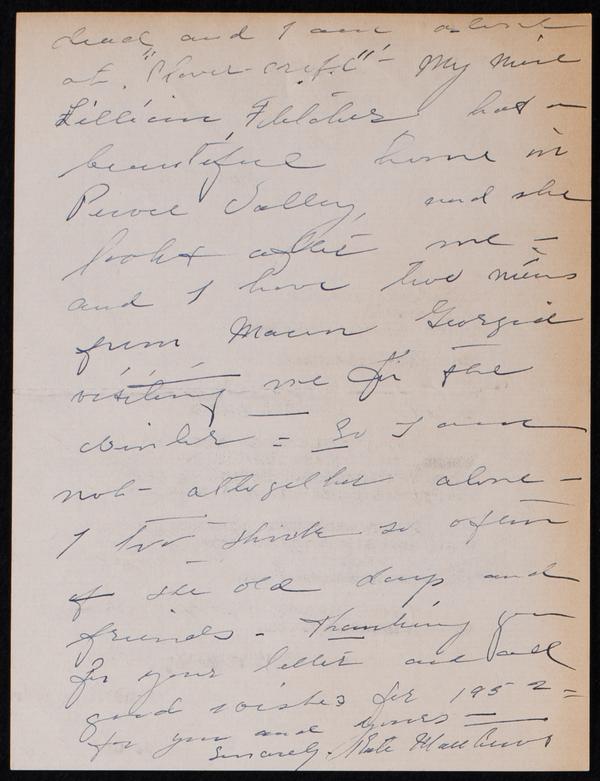 dead and I am alone
at "Clover-croft" - My niece
Lillian Fletcher has a
beautiful home in
Pewee Valley, and she
looks after me -
and I have two nieces
from Macon Georgia
visiting me for the
winter = So I am
not - altogether alone -
I too think so often
of the old days and
friends - Thanking you
for your letter and all
good wishes for 1952 =
for you and yours =
Sincerely, Kate Matthews